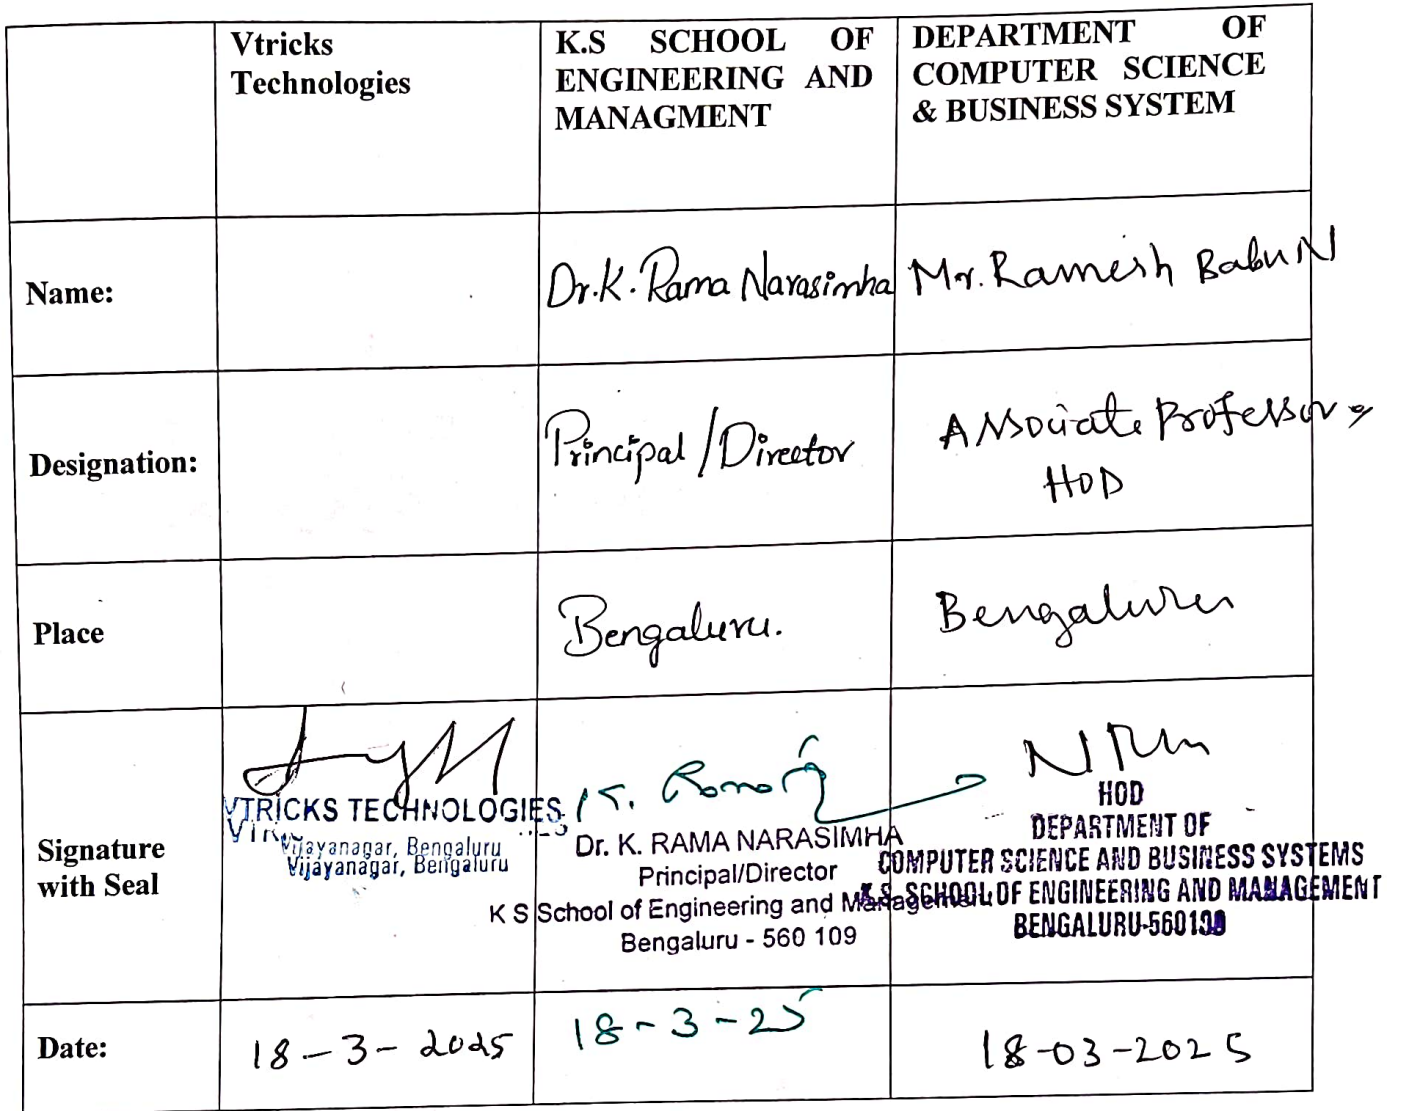 Vtricks
Technologies
K.S SCHOOL OF
ENGINEERING AND
MANAGMENT
DEPARTMENT OF
COMPUTER SCIENCE
& BUSINESS SYSTEM
Name:
Dr.K. Rama Narasimha
Mr. Ramesh Babu N
Designation:
Principal/Director
Associate Professor &
HOD
Place
Bengaluru.
Bengaluru
Signature
with Seal
VTRICKS TECHNOLOGIES
Vijayanagar, Bengaluru
Vijayanagar, Bengaluru
K. Rama
Dr. K. RAMA NARASIMHA
Principal/Director
K S School of Engineering and Management
Bengaluru - 560 109
HOD
DEPARTMENT OF
COMPUTER SCIENCE AND BUSINESS SYSTEMS
K.S. SCHOOL OF ENGINEERING AND MANAGEMENT
BENGALURU-560109
Date:
18-3-2025
18-3-25
18-03-2025